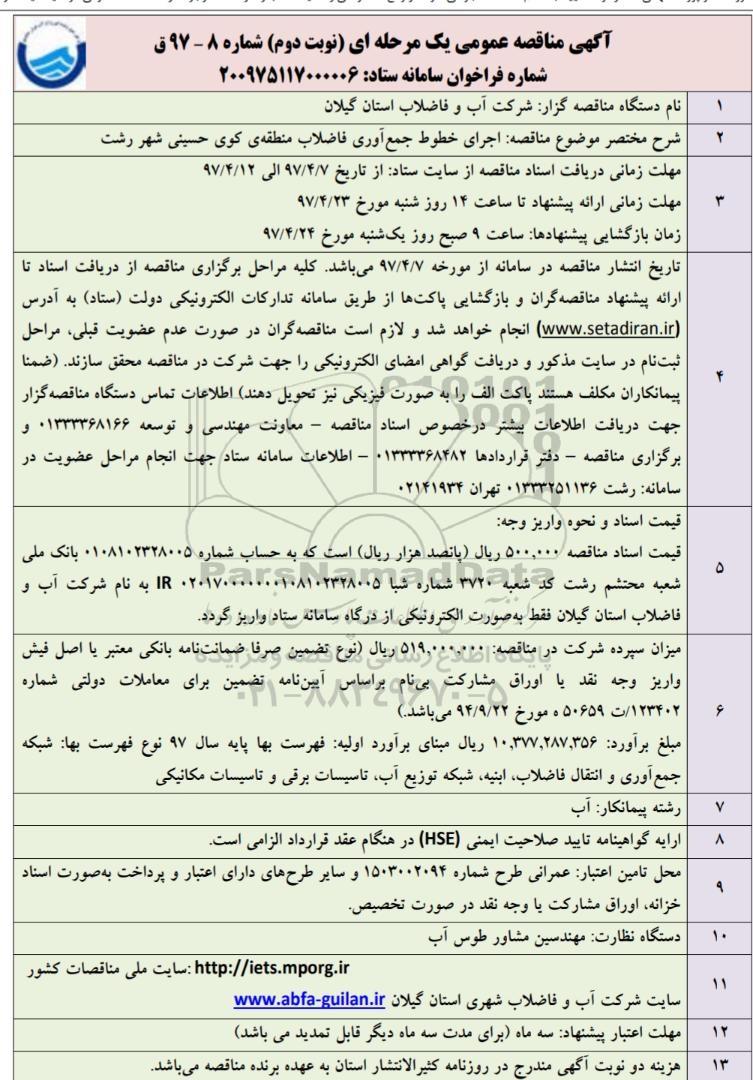 آگهی مناقصه عمومی یک مرحله ای (نوبت دوم) شماره ۸ – ۹۷ ق
شماره فراخوان سامانه ستاد: ۲۰۰۹۷۵۱۱۷۰۰۰۰۰۶
۱ نام دستگاه مناقصه گزار: شرکت آب و فاضلاب استان گیلان
۲ شرح مختصر موضوع مناقصه: اجرای خطوط جمع‌آوری فاضلاب منطقه‌ی کوی حسینی شهر رشت
مهلت زمانی دریافت اسناد مناقصه از سایت ستاد: از تاریخ ۹۷/۴/۷ الی ۹۷/۴/۱۲
۳ مهلت زمانی ارائه پیشنهاد تا ساعت ۱۴ روز شنبه مورخ ۹۷/۴/۲۳
زمان بازگشایی پیشنهادها: ساعت ۹ صبح روز یک‌شنبه مورخ ۹۷/۴/۲۴
تاریخ انتشار مناقصه در سامانه از مورخه ۹۷/۴/۷ می‌باشد. کلیه مراحل برگزاری مناقصه از دریافت اسناد تا
ارائه پیشنهاد مناقصه‌گران و بازگشایی پاکت‌ها از طریق سامانه تدارکات الکترونیکی دولت (ستاد) به آدرس
(www.setadiran.ir) انجام خواهد شد و لازم است مناقصه‌گران در صورت عدم عضویت قبلی، مراحل
ثبت‌نام در سایت مذکور و دریافت گواهی امضای الکترونیکی را جهت شرکت در مناقصه محقق سازند. (ضمنا
۴ پیمانکاران مکلف هستند پاکت الف را به صورت فیزیکی نیز تحویل دهند) اطلاعات تماس دستگاه مناقصه‌گزار
جهت دریافت اطلاعات بیشتر درخصوص اسناد مناقصه – معاونت مهندسی و توسعه ۰۱۳۳۳۳۶۸۱۶۶ و
برگزاری مناقصه – دفتر قراردادها ۰۱۳۳۳۳۶۸۴۸۲ – اطلاعات سامانه ستاد جهت انجام مراحل عضویت در
سامانه: رشت ۰۱۳۳۳۲۵۱۱۳۶ تهران ۰۲۱۴۱۹۳۴
قیمت اسناد و نحوه واریز وجه:
۵ قیمت اسناد مناقصه ۵۰۰,۰۰۰ ریال (پانصد هزار ریال) است که به حساب شماره ۰۱۰۸۱۰۲۳۲۸۰۰۵ بانک ملی
شعبه محتشم رشت کد شعبه ۳۷۲۰ شماره شبا IR ۰۲۰۱۷۰۰۰۰۰۰۰۱۰۸۱۰۲۳۲۸۰۰۵ به نام شرکت آب و
فاضلاب استان گیلان فقط به‌صورت الکترونیکی از درگاه سامانه ستاد واریز گردد.
میزان سپرده شرکت در مناقصه: ۵۱۹,۰۰۰,۰۰۰ ریال (نوع تضمین صرفا ضمانت‌نامه بانکی معتبر یا اصل فیش
واریز وجه نقد یا اوراق مشارکت بی‌نام براساس آیین‌نامه تضمین برای معاملات دولتی شماره
۶ ۱۲۳۴۰۲/ت ۵۰۶۵۹ ه مورخ ۹۴/۹/۲۲ می‌باشد.)
مبلغ برآورد: ۱۰,۳۷۷,۲۸۷,۳۵۶ ریال مبنای برآورد اولیه: فهرست بها پایه سال ۹۷ نوع فهرست بها: شبکه
جمع‌آوری و انتقال فاضلاب، ابنیه، شبکه توزیع آب، تاسیسات برقی و تاسیسات مکانیکی
۷ رشته پیمانکار: آب
۸ ارایه گواهینامه تایید صلاحیت ایمنی (HSE) در هنگام عقد قرارداد الزامی است.
۹ محل تامین اعتبار: عمرانی طرح شماره ۱۵۰۳۰۰۲۰۹۴ و سایر طرح‌های دارای اعتبار و پرداخت به‌صورت اسناد
خزانه، اوراق مشارکت یا وجه نقد در صورت تخصیص.
۱۰ دستگاه نظارت: مهندسین مشاور طوس آب
۱۱ http://iets.mporg.ir :سایت ملی مناقصات کشور
سایت شرکت آب و فاضلاب شهری استان گیلان www.abfa-guilan.ir
۱۲ مهلت اعتبار پیشنهاد: سه ماه (برای مدت سه ماه دیگر قابل تمدید می باشد)
۱۳ هزینه دو نوبت آگهی مندرج در روزنامه کثیرالانتشار استان به عهده برنده مناقصه می‌باشد.
ParsNamadData
پایگاه اطلاع رسانی مناقصه و مزایده
۰۲۱-۸۸۳۴۹۶۷۰-۵